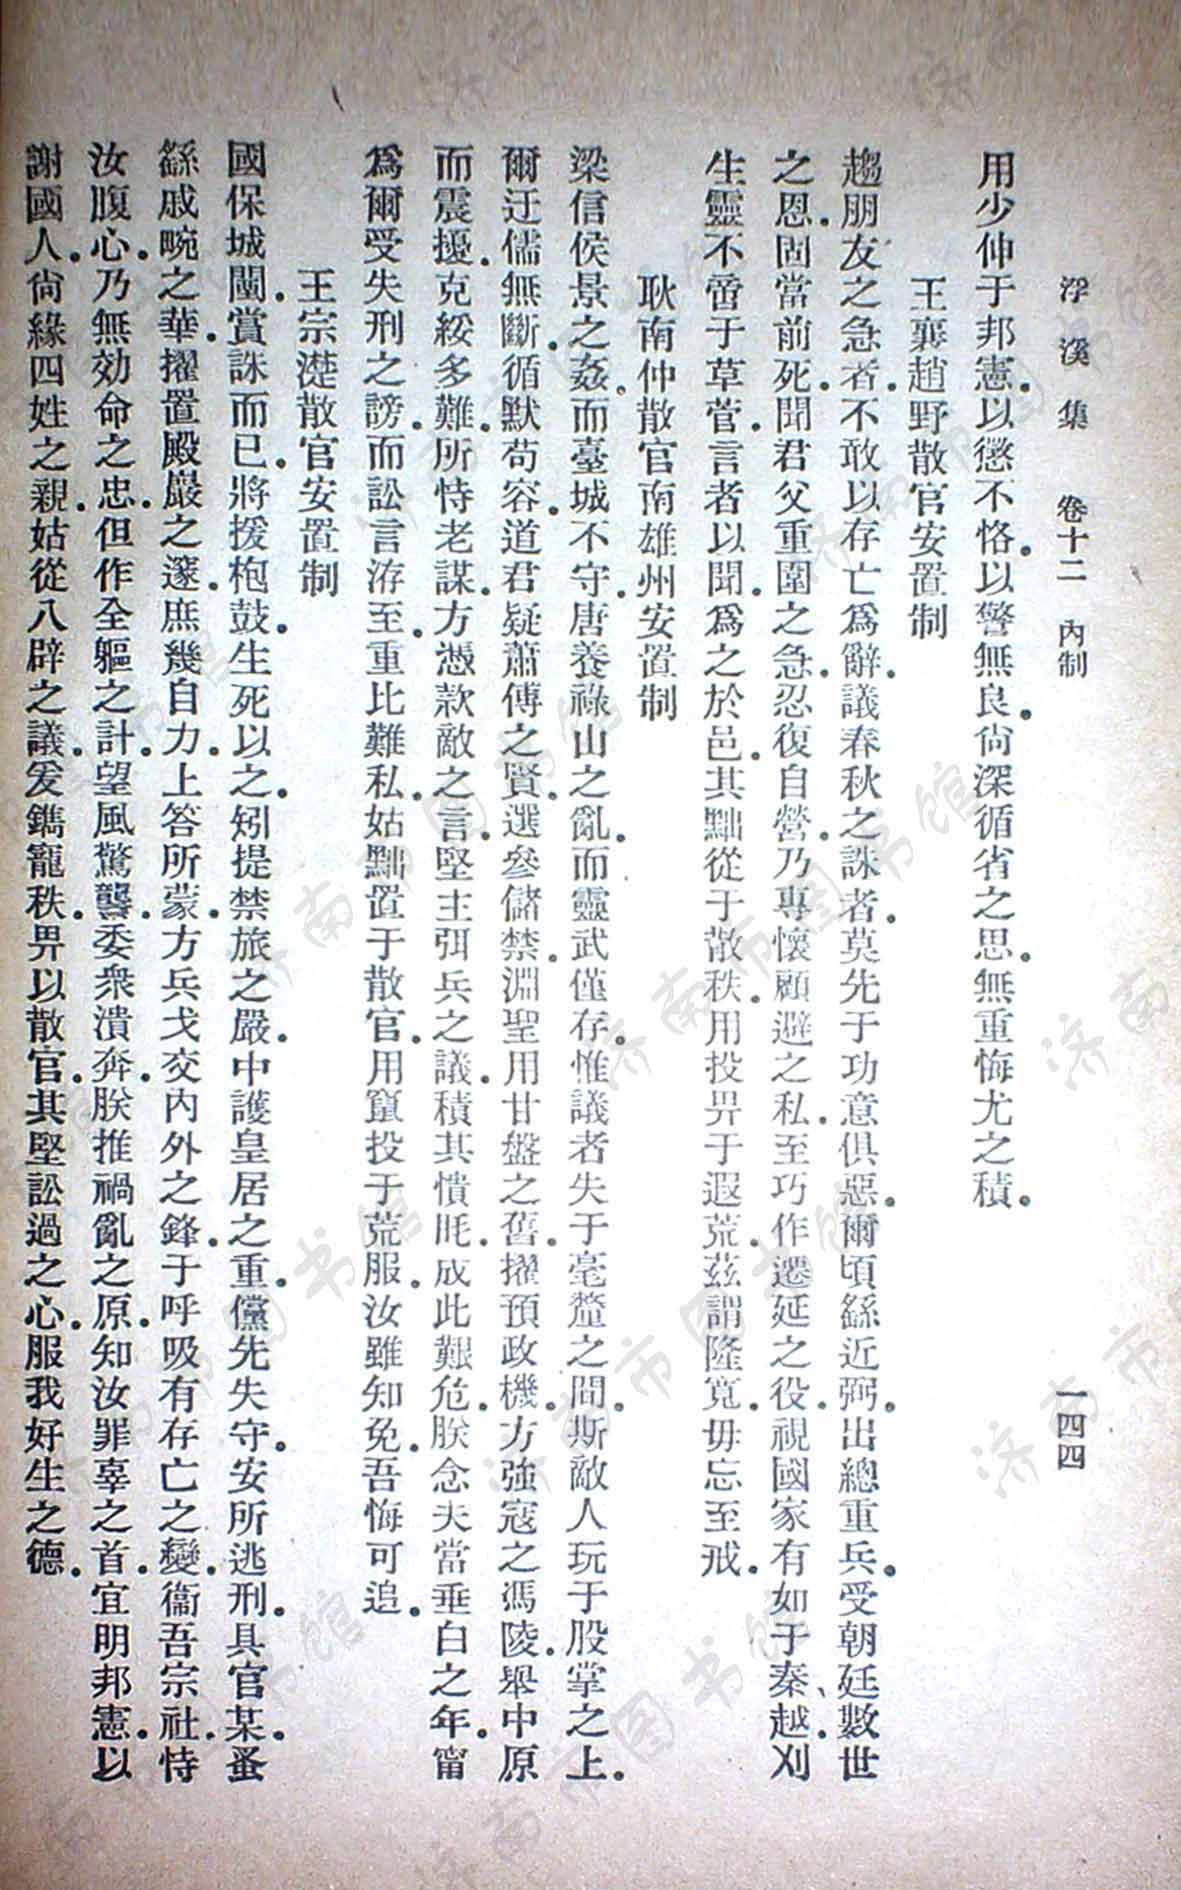 浮溪集 卷十二 內制 一四四
用少伸于邦憲。以懲不恪。以警無良。尙深循省之思。無重悔尤之積。
王襄趙野散官安置制
趨朋友之急者。不敢以存亡爲辭。議春秋之誅者。莫先于功意俱惡。爾頃繇近弼。出總重兵。受朝廷數世
之恩。固當前死。聞君父重圍之急。忍復自營。乃專懷顧避之私。至巧作遷延之役。視國家有如于秦、越。刈
生靈不啻于草菅。言者以聞。爲之於邑。其黜從于散秩。用投畀于遐荒。茲謂隆寬。毋忘至戒。
耿南仲散官南雄州安置制
梁信侯景之姦。而臺城不守。唐養祿山之亂。而靈武僅存。惟議者失于毫釐之間。斯敵人玩于股掌之上。
爾迂儒無斷。循默苟容。道君疑蕭傅之賢。選參儲禁。淵聖用甘盤之舊。擢預政機。方強寇之馮陵。舉中原
而震擾。克綏多難。所恃老謀。方憑款敵之言。堅主弭兵之議。積其憒眊。成此艱危。朕念夫當垂白之年。甯
爲爾受失刑之謗。而訟言洊至。重比難私。姑黜置于散官。用竄投于荒服。汝雖知免。吾悔可追。
王宗濋散官安置制
國保城闉。賞誅而已。將援枹鼓。生死以之。矧提禁旅之嚴。中護皇居之重。儻先失守。安所逃刑。具官某。蚤
繇戚畹之華。擢置殿巖之邃。庶幾自力。上答所蒙。方兵戈交內外之鋒。于呼吸有存亡之變。衞吾宗社。恃
汝腹心。乃無効命之忠。但作全軀之計。望風驚讋。委衆潰奔。朕推禍亂之原。知汝罪辜之首。宜明邦憲。以
謝國人。尙緣四姓之親。姑從八辟之議。爰鐫寵秩。畀以散官。其堅訟過之心。服我好生之德。
济南市图书馆